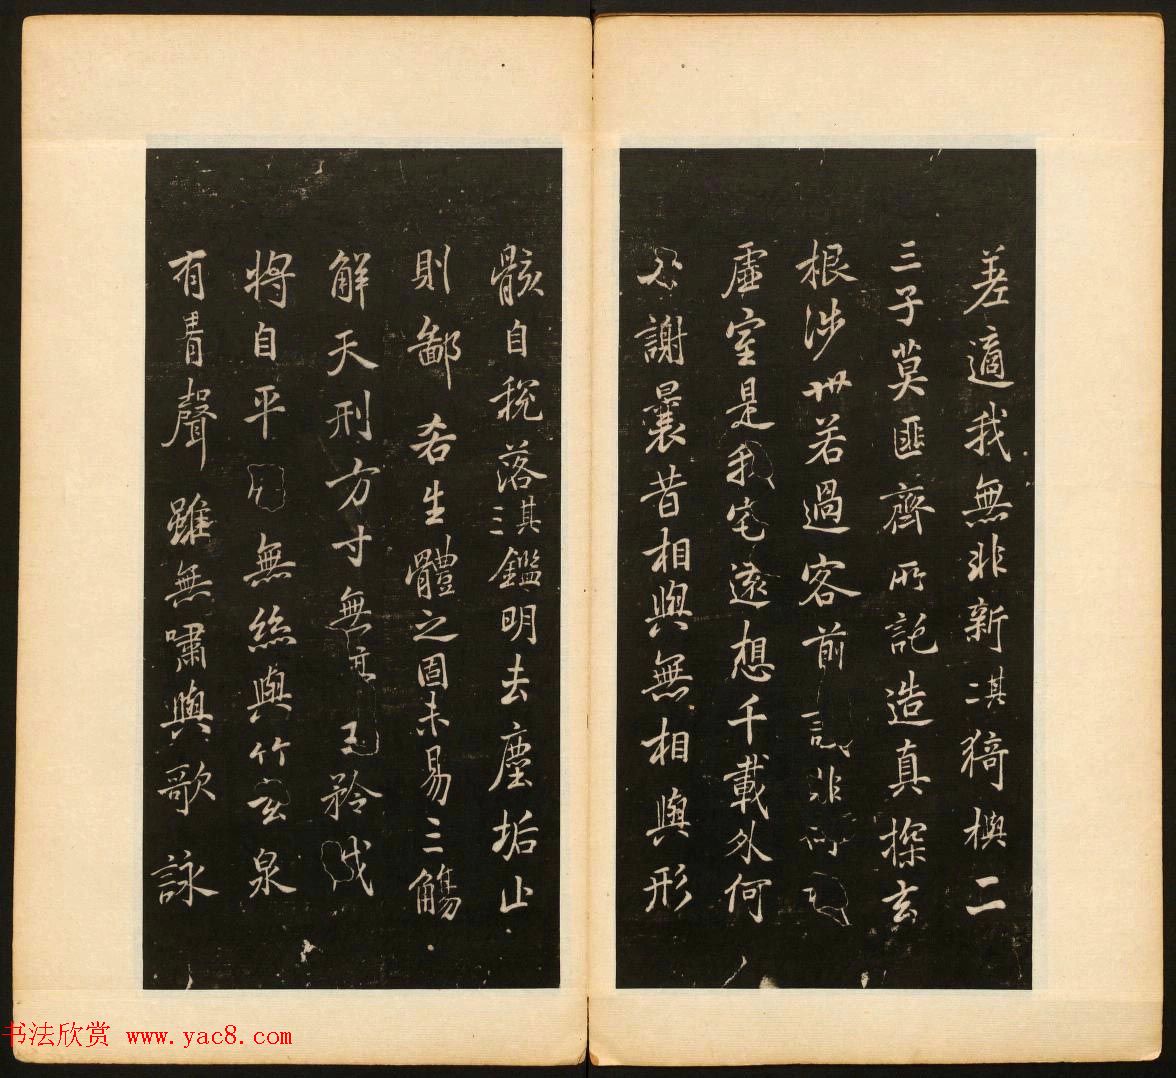 差適我無非新其二猗與二
三子莫匪齊所託造真探玄
根涉世若過客前識非所
虛室是我宅遠想千載外何
必謝曩昔相與無相與形
骸自稅落其三鑑明去塵垢止
則鄙吝生體之固未易三觴
解天刑方寸無停主矜伐
將自平雖無絲與竹玄泉
有清聲雖無嘯與歌詠
书法欣赏 www.yac8.com